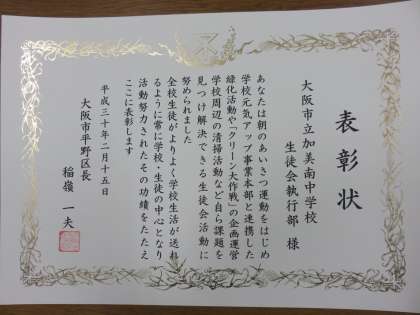 表彰状
大阪市立加美南中学校
生徒会執行部 様
あなたは朝のあいさつ運動をはじめ
学校元気アップ事業本部と連携した
緑化活動や「クリーン大作戦」の企画運営
学校周辺の清掃活動など自ら課題を
見つけ解決できる生徒会活動に
努められました
全校生徒がよりよく学校生活が送れ
るように常に学校・生徒の中心となり
活動努力されたその功績をたたえ
ここに表彰します
平成三十年二月十五日
大阪市平野区長
稲嶺 一夫